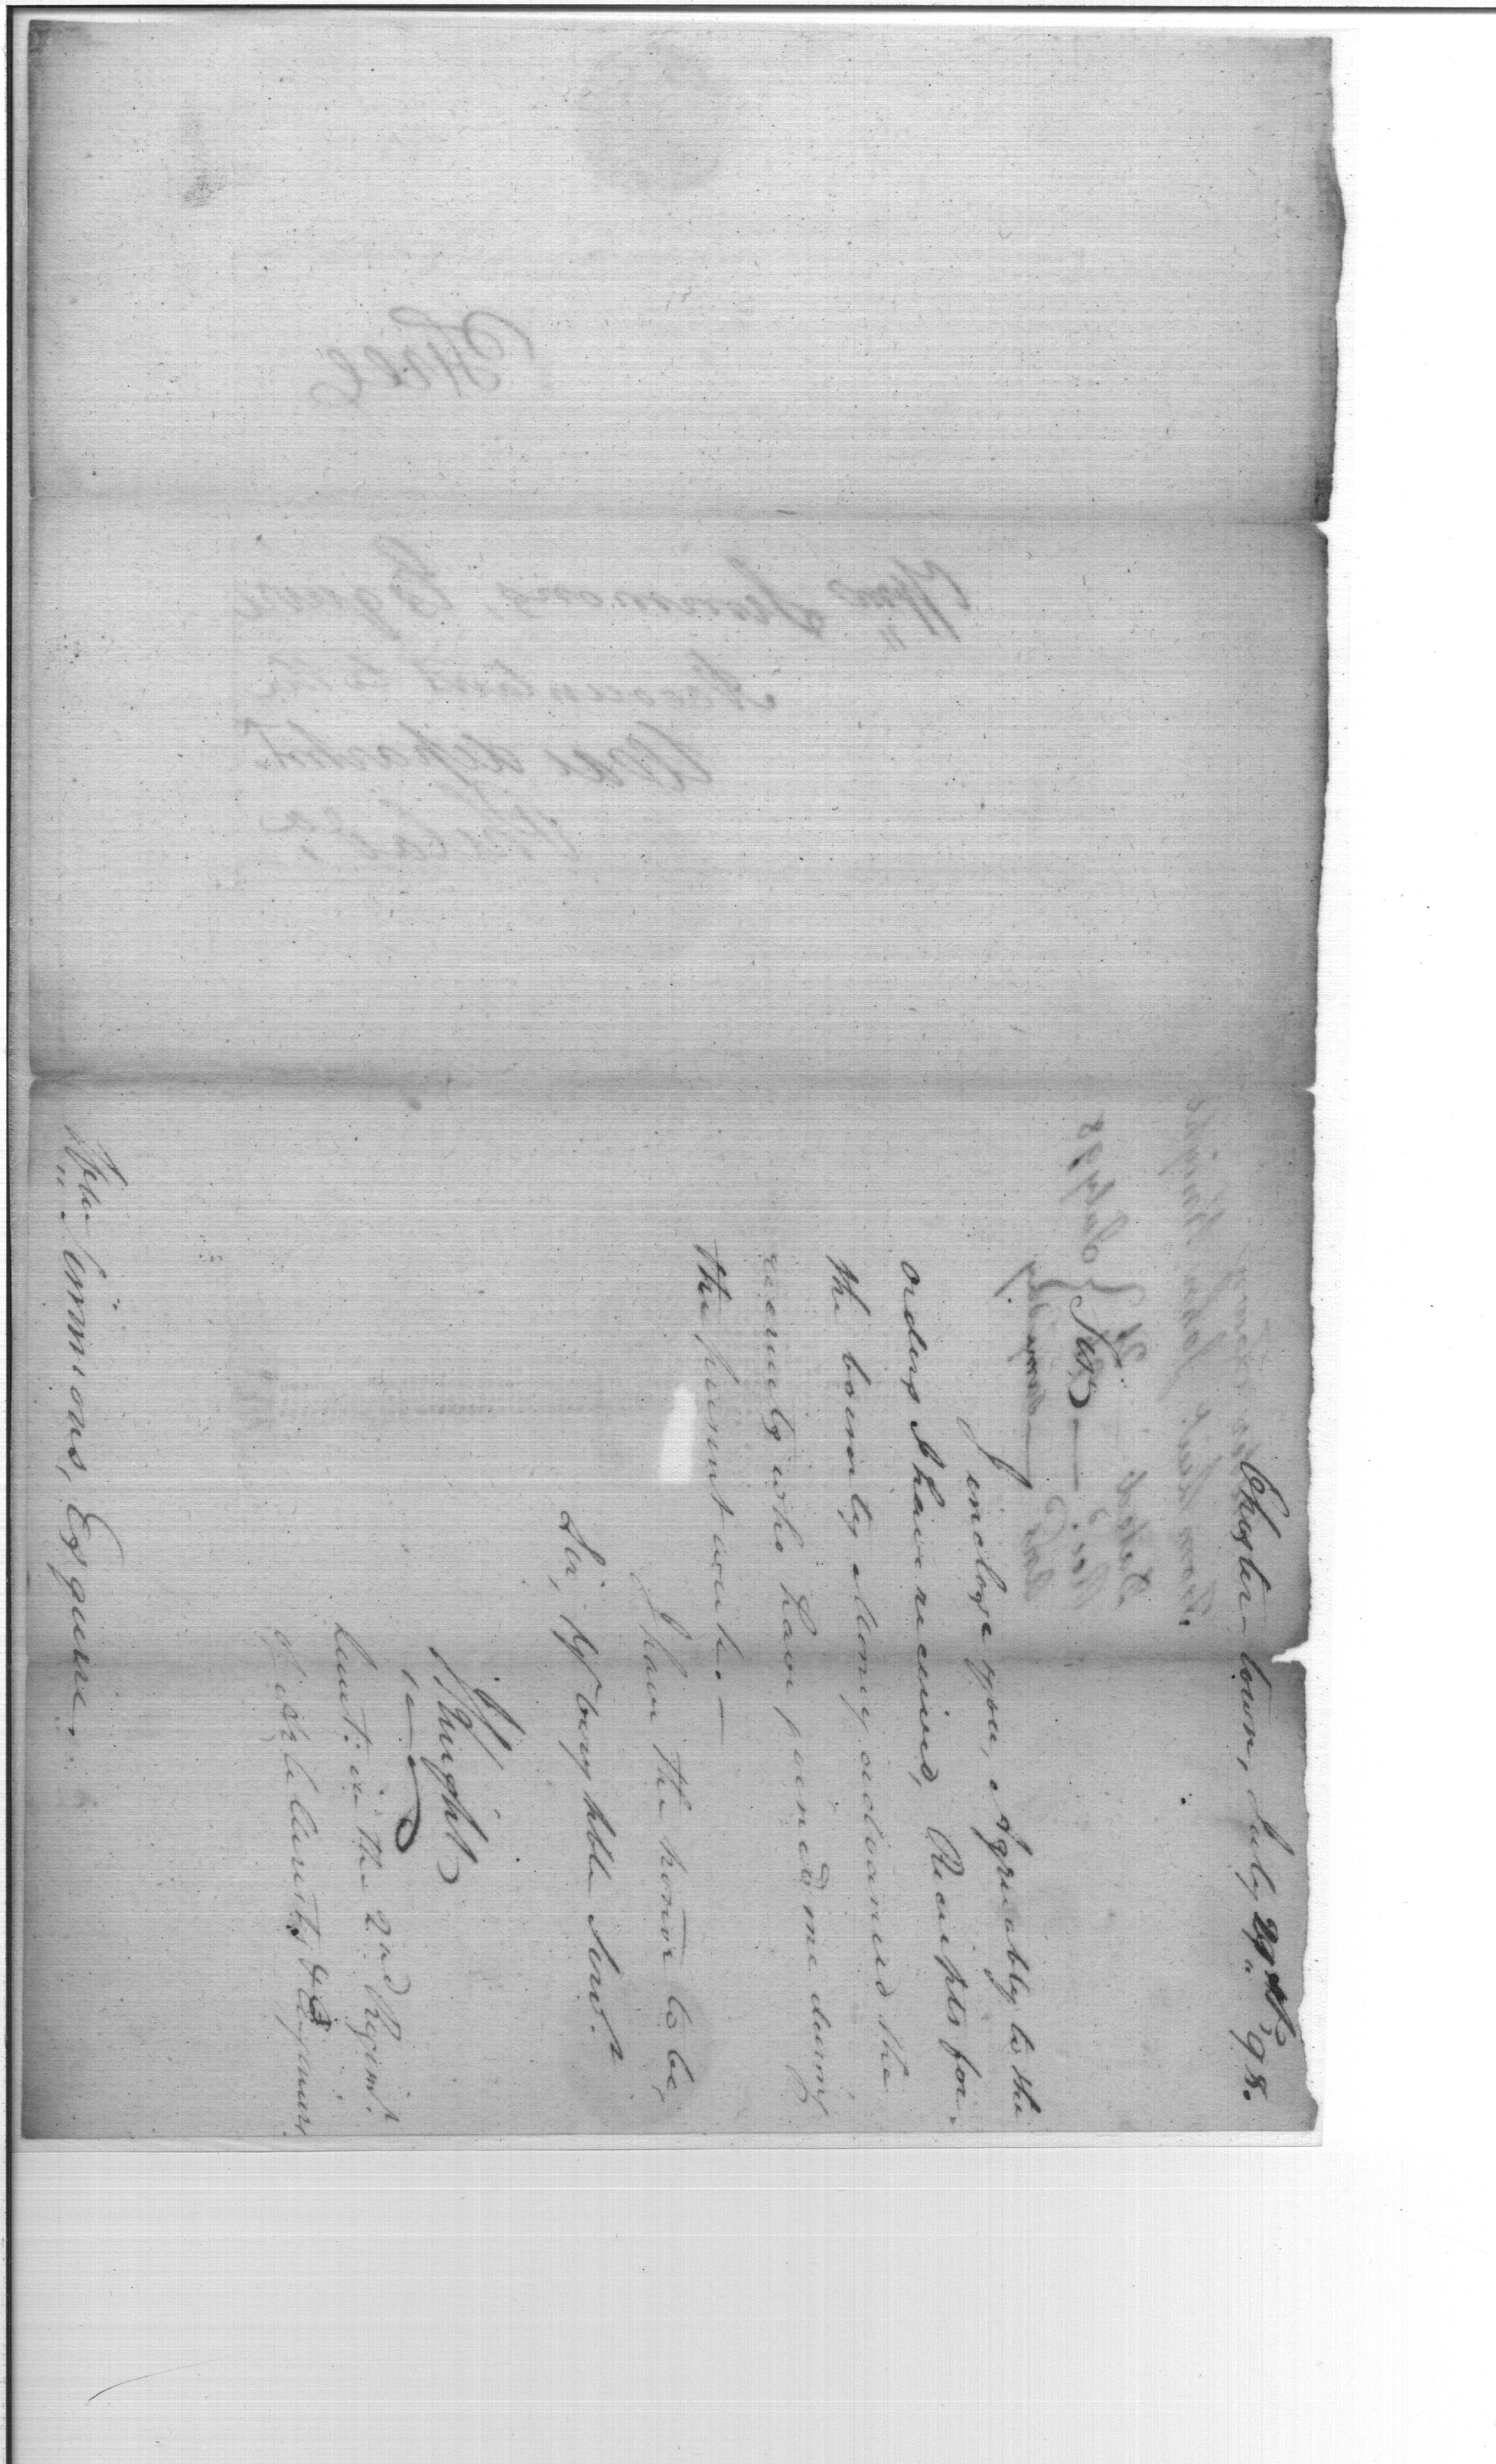 Chester-town, July 29th, 98.
Sir,
I inclose you, Agreeably to the
orders I have received, Receipts for
the bounty Money advanced the
recruits who have joined me during
the present week.—
I have the honor to be,
Sir, Yr. very hble Servt.
J. Knight
Lieut: in the 2nd Regimt.
of Artillerists & Engineers
Wm. Simmons, Esquire.
Free
Wm. Simmons, Esquire
Accountant to the
War departmt.
Philada.
From Lieut. John Knight
Dated
July 98